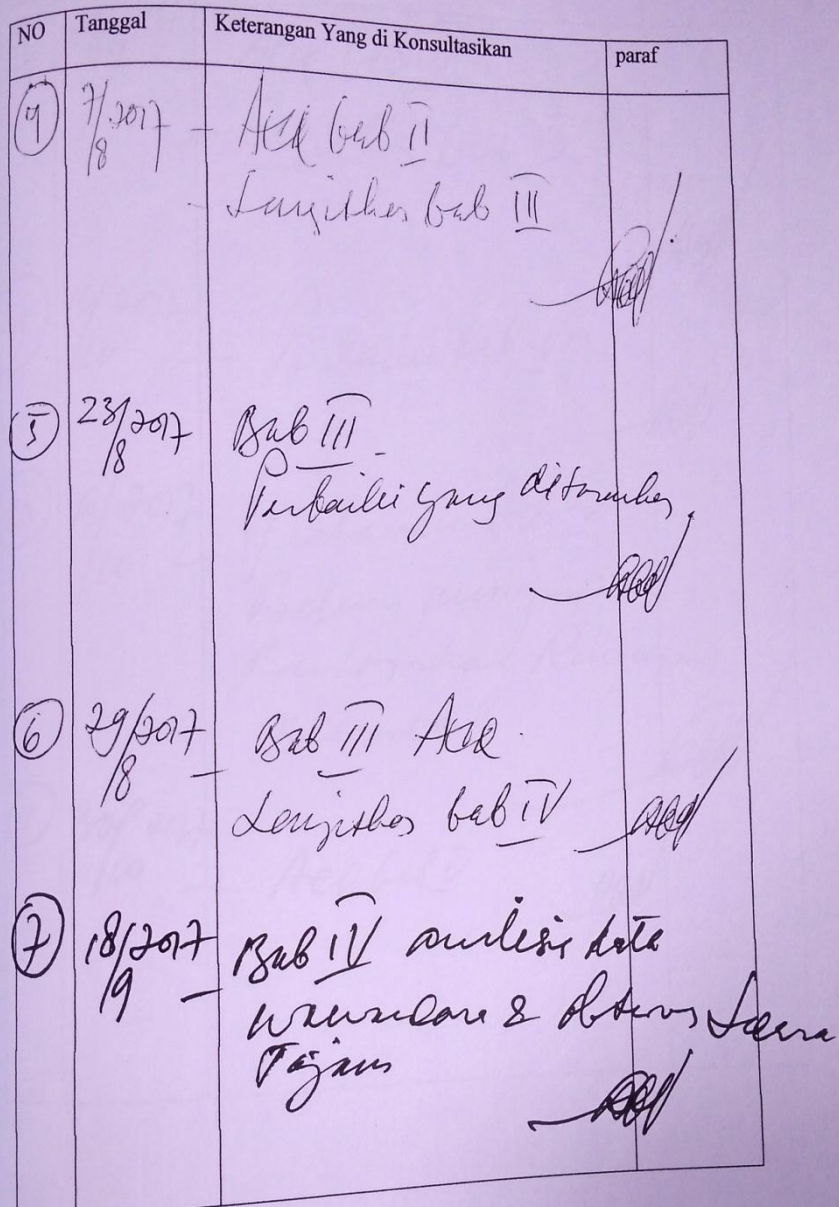 NO Tanggal Keterangan Yang di Konsultasikan paraf
4 7/8 2017 - Acc bab II
- Lanjutkan bab III
5 23/8 2017 Bab III
Perbaiki yang ditandai
6 29/8 2017 - Bab III Acc.
Lanjutkan bab IV
7 18/9 2017 - Bab IV analisis data
wawancara & observasi secara
Tajam